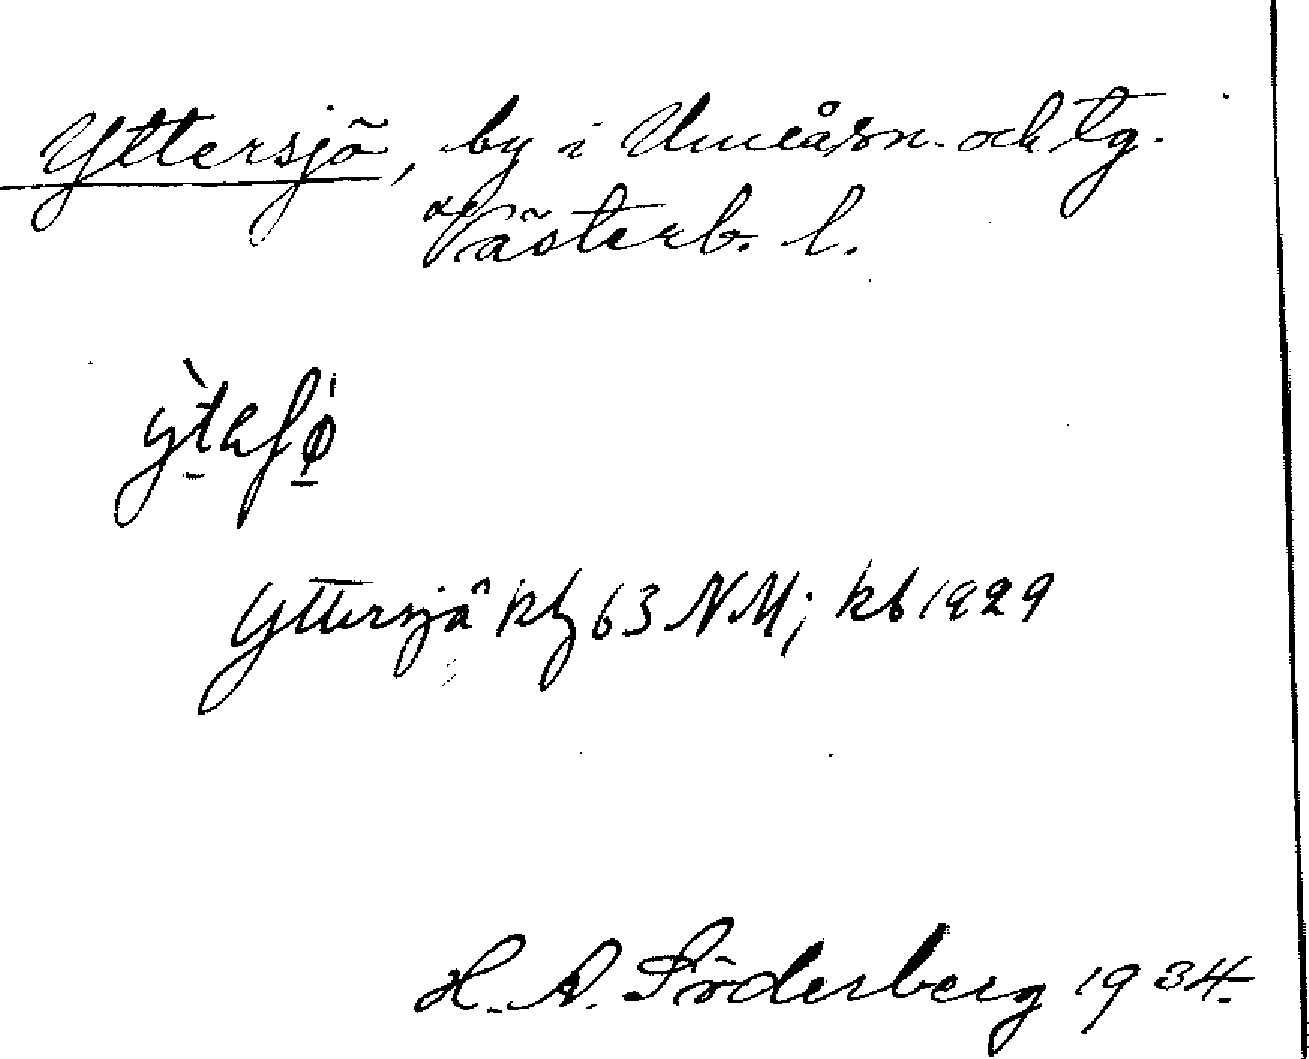 Yttersjö, by i Umeå sn. och tg.
Västerb. l.
Yttersjö kbg 63 NM; kb 1929
H. A. Söderberg 1934.